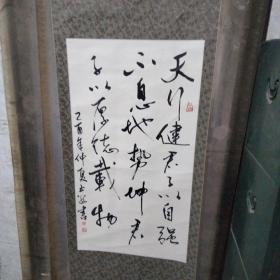 天行健君子以自强
不息地势坤君
子以厚德载物
乙酉年仲夏
书